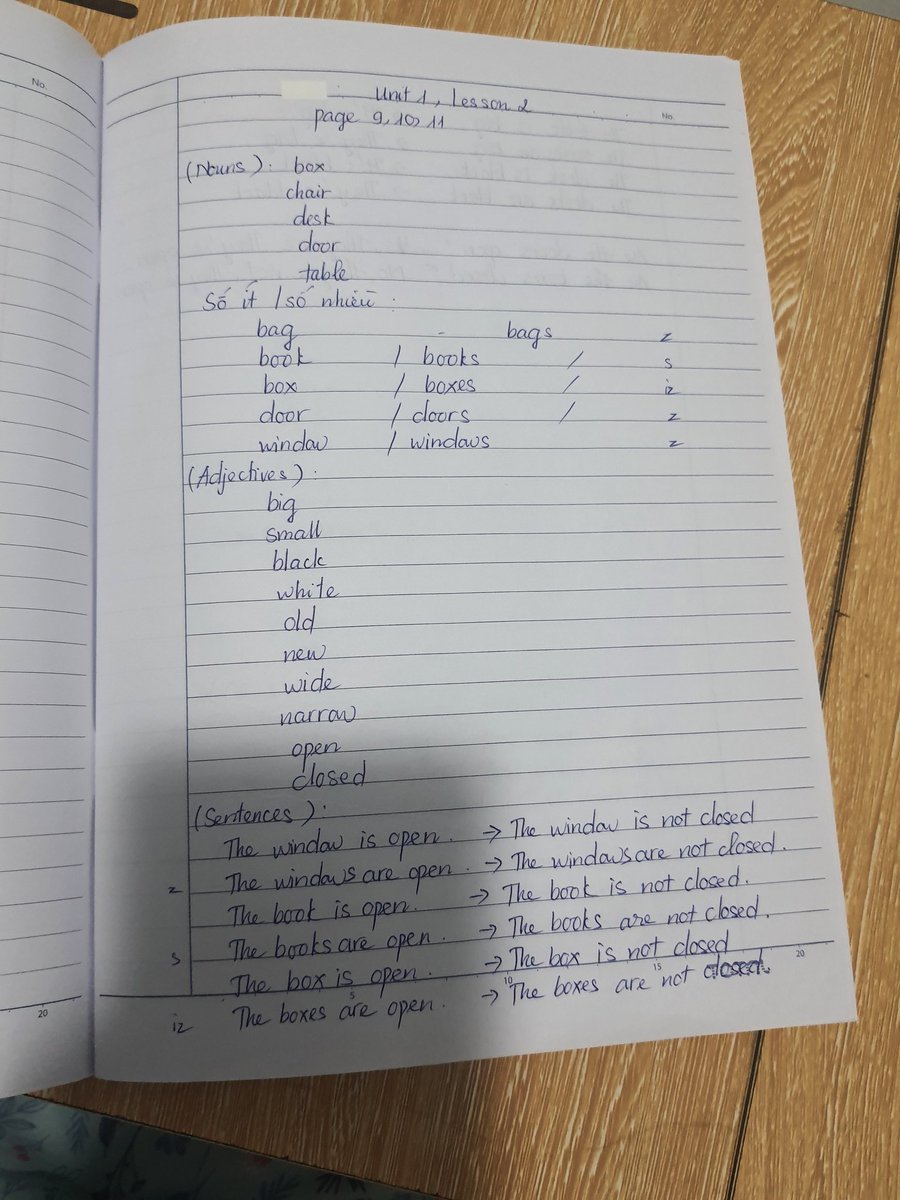 No.
Unit 1, Lesson 2
No.
page 9, 10, 11
(Nouns): box
chair
desk
door
table
Số ít / số nhiều:
bag - bags z
book / books / s
box / boxes / iz
door / doors / z
window / windows z
(Adjectives):
big
small
black
white
old
new
wide
narrow
open
closed
(Sentences):
The window is open. → The window is not closed
z The windows are open. → The windows are not closed.
The book is open. → The book is not closed.
s The books are open. → The books are not closed.
The box is open. → The box is not closed
iz The boxes are open. → The boxes are not closed.
5 10 15 20
20